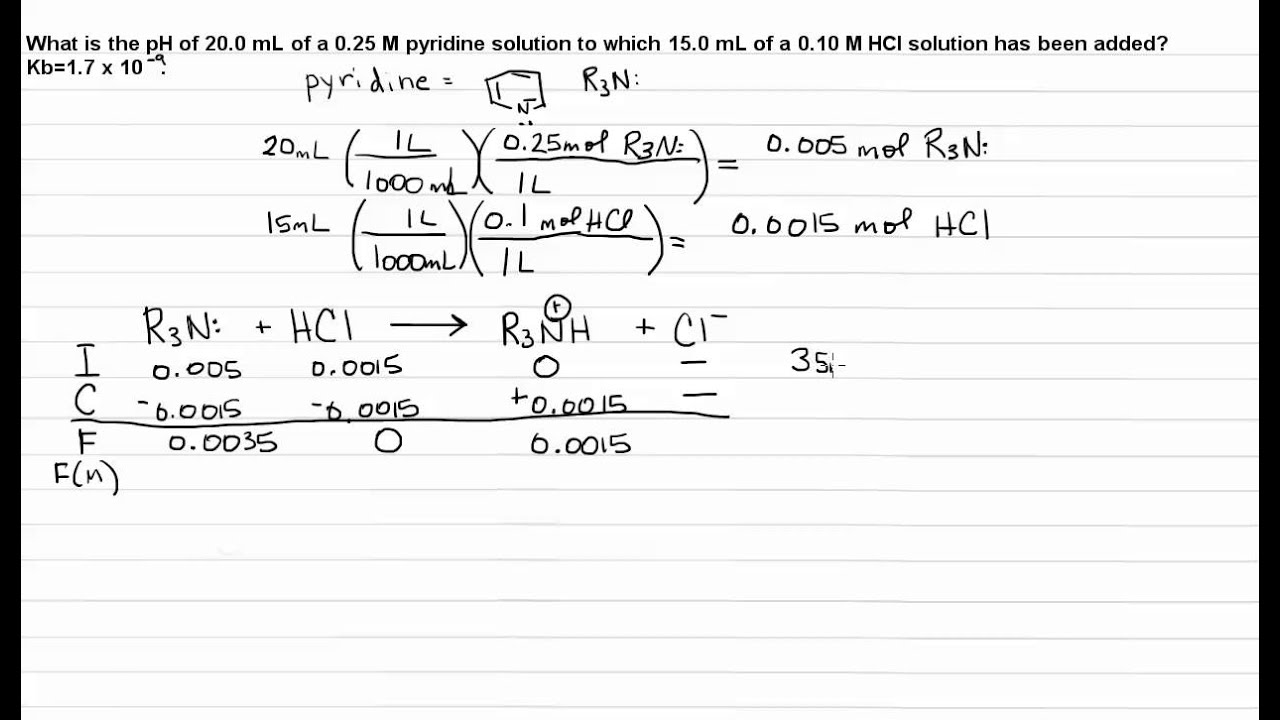 What is the pH of 20.0 mL of a 0.25 M pyridine solution to which 15.0 mL of a 0.10 M HCl solution has been added?
Kb=1.7 x 10⁻⁹.
pyridine = N R₃N:
20mL (1L / 1000 mL)(0.25mol R₃N: / 1L) = 0.005 mol R₃N:
15mL (1L / 1000mL)(0.1 mol HCl / 1L) = 0.0015 mol HCl
R₃N: + HCl → R₃N⊕H + Cl⁻
I 0.005 0.0015 0 — 35
C -0.0015 -0.0015 +0.0015 —
F 0.0035 0 0.0015
F(M)